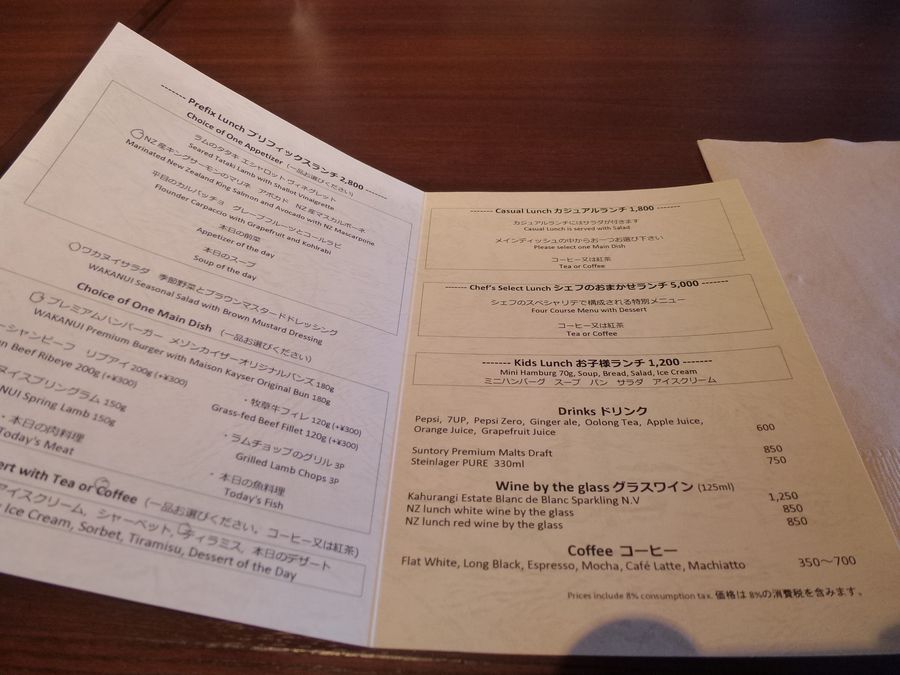 ------- Prefix Lunch プリフィックスランチ 2,800 -------
Choice of One Appetizer (一品お選びください)
ラムのタタキ エシャロット ヴィネグレット
Seared Tataki Lamb with Shallot Vinaigrette
NZ産キングサーモンのマリネ アボカド NZ産マスカルポーネ
Marinated New Zealand King Salmon and Avocado with NZ Mascarpone
平目のカルパッチョ グレープフルーツとコールラビ
Flounder Carpaccio with Grapefruit and Kohlrabi
本日の前菜
Appetizer of the day
本日のスープ
Soup of the day
ワカヌイサラダ 季節野菜とブラウンマスタードドレッシング
WAKANUI Seasonal Salad with Brown Mustard Dressing
Choice of One Main Dish (一品お選びください)
プレミアムバーガー メゾンカイザーオリジナルバンズ 180g
WAKANUI Premium Burger with Maison Kayser Original Bun 180g
ーシャンビーフ リブアイ 200g (+¥300)
n Beef Ribeye 200g (+¥300)
・牧草牛フィレ 120g (+¥300)
Grass-fed Beef Fillet 120g (+¥300)
ヌイスプリングラム 150g
NUI Spring Lamb 150g
・ラムチョップのグリル 3P
Grilled Lamb Chops 3P
・本日の肉料理
Today's Meat
・本日の魚料理
Today's Fish
ert with Tea or Coffee (一品お選びください。コーヒー又は紅茶)
アイスクリーム, シャーベット, ティラミス, 本日のデザート
Ice Cream, Sorbet, Tiramisu, Dessert of the Day
------- Casual Lunch カジュアルランチ 1,800 -------
カジュアルランチにはサラダが付きます
Casual Lunch is served with Salad
メインディッシュの中からお一つお選び下さい
Please select one Main Dish
コーヒー又は紅茶
Tea or Coffee
------- Chef's Select Lunch シェフのおまかせランチ 5,000 -------
シェフのスペシャリテで構成される特別メニュー
Four Course Menu with Dessert
コーヒー又は紅茶
Tea or Coffee
------- Kids Lunch お子様ランチ 1,200 -------
Mini Hamburg 70g, Soup, Bread, Salad, Ice Cream
ミニハンバーグ スープ パン サラダ アイスクリーム
Drinks ドリンク
Pepsi, 7UP, Pepsi Zero, Ginger ale, Oolong Tea, Apple Juice,
Orange Juice, Grapefruit Juice 600
Suntory Premium Malts Draft 850
Steinlager PURE 330ml 750
Wine by the glass グラスワイン (125ml)
Kahurangi Estate Blanc de Blanc Sparkling N.V 1,250
NZ lunch white wine by the glass 850
NZ lunch red wine by the glass 850
Coffee コーヒー
Flat White, Long Black, Espresso, Mocha, Café Latte, Machiatto 350～700
Prices include 8% consumption tax. 価格は 8%の消費税を含みます。